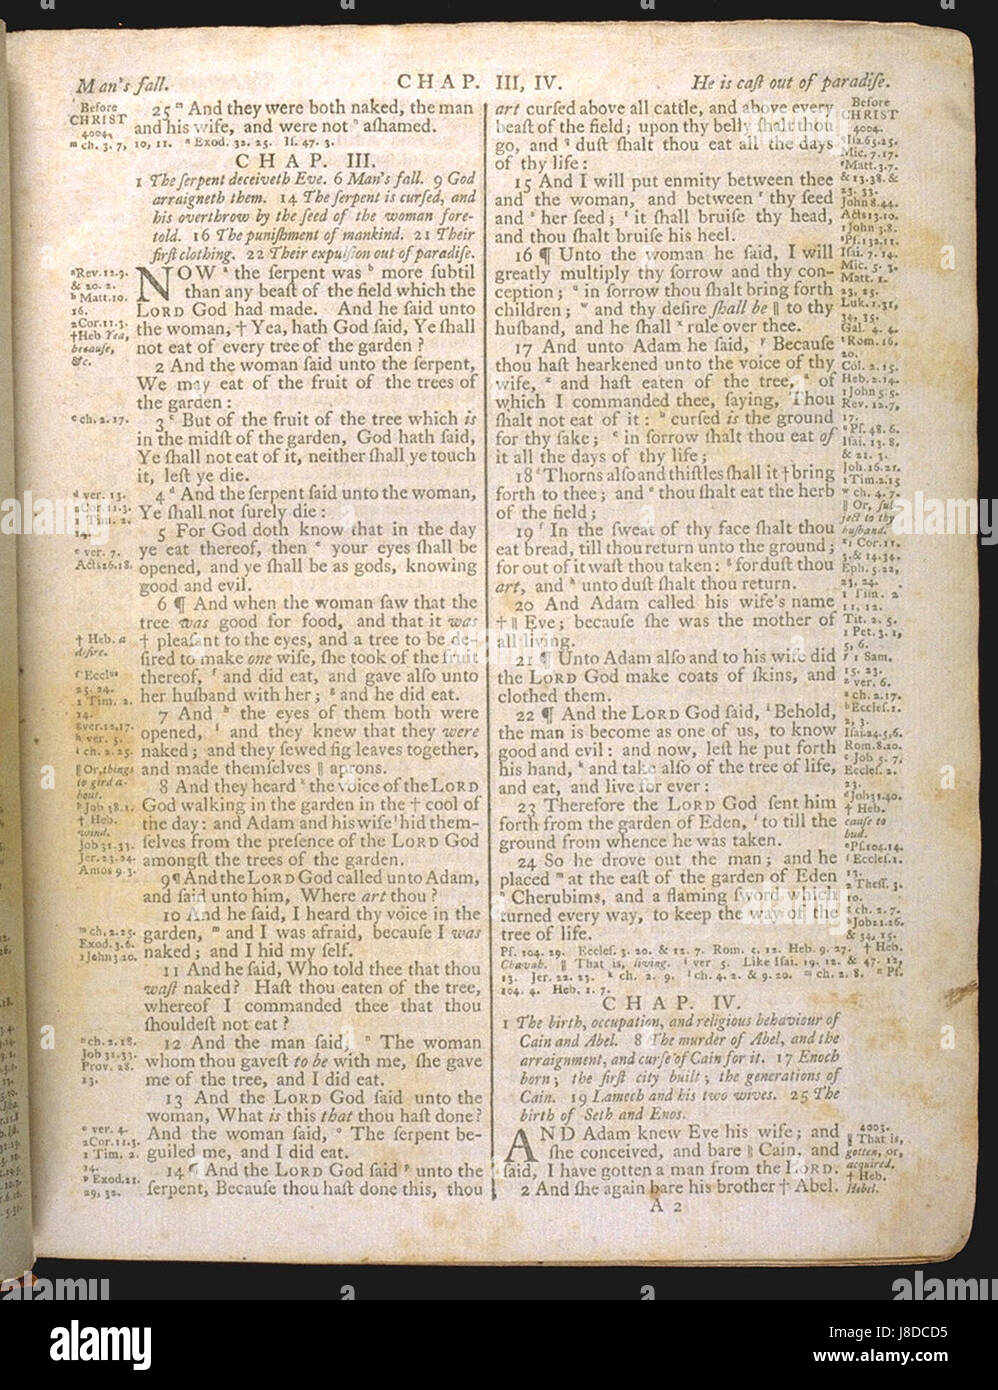 Man's fall.
CHAP. III, IV.
He is caſt out of paradiſe.
Before
CHRIST
4004.
25 ᵐ And they were both naked, the man
and his wife, and were not ⁿ aſhamed.
ᵐ ch. 3. 7, 10, 11. ⁿ Exod. 32. 25. Iſ. 47. 3.
CHAP. III.
1 The ſerpent deceiveth Eve. 6 Man's fall. 9 God
arraigneth them. 14 The ſerpent is curſed, and
his overthrow by the ſeed of the woman fore-
told. 16 The puniſhment of mankind. 21 Their
firſt clothing. 22 Their expulſion out of paradiſe.
ᵃ Rev. 12.9.
& 20. 2.
ᵇ Matt. 10.
16.
2 Cor. 11. 3.
† Heb. Yea,
becauſe,
&c.
NOW ᵃ the ſerpent was ᵇ more ſubtil
than any beaſt of the field which the
LORD God had made. And he ſaid unto
the woman, † Yea, hath God ſaid, Ye ſhall
not eat of every tree of the garden ?
2 And the woman ſaid unto the ſerpent,
We may eat of the fruit of the trees of
the garden :
ᶜ ch. 2. 17.
3 ᶜ But of the fruit of the tree which is
in the midſt of the garden, God hath ſaid,
Ye ſhall not eat of it, neither ſhall ye touch
it, leſt ye die.
ᵈ ver. 13.
2 Cor. 11. 3.
1 Tim. 2.
14.
4 ᵈ And the ſerpent ſaid unto the woman,
Ye ſhall not ſurely die :
ᵉ ver. 7.
Acts 26. 18.
5 For God doth know that in the day
ye eat thereof, then ᵉ your eyes ſhall be
opened, and ye ſhall be as gods, knowing
good and evil.
6 ¶ And when the woman ſaw that the
tree was good for food, and that it was
† Heb. a
deſire.
† pleaſant to the eyes, and a tree to be de-
ſired to make one wiſe, ſhe took of the fruit
thereof, ᶠ and did eat, and gave alſo unto
her huſband with her ; ᵍ and he did eat.
ᶠ Eccluſ
25. 24.
1 Tim. 2.
14.
ᵍ ver. 12, 17.
ʰ ver. 5.
ⁱ ch. 2. 25.
7 And ʰ the eyes of them both were
opened, ⁱ and they knew that they were
naked ; and they ſewed fig leaves together,
and made themſelves ‖ aprons.
‖ Or, things
to gird a-
bout.
ᵏ Job 38. 1.
† Heb.
wind.
Job 31. 33.
Jer. 23. 24.
Amos 9 3.
8 And they heard ᵏ the voice of the LORD
God walking in the garden in the † cool of
the day : and Adam and his wife ˡ hid them-
ſelves from the preſence of the LORD God
amongſt the trees of the garden.
9 ¶ And the LORD God called unto Adam,
and ſaid unto him, Where art thou ?
ᵐ ch. 2. 25.
Exod. 3. 6.
1 John 3. 20.
10 And he ſaid, I heard thy voice in the
garden, ᵐ and I was afraid, becauſe I was
naked ; and I hid my ſelf.
11 And he ſaid, Who told thee that thou
waſt naked ? Haſt thou eaten of the tree,
whereof I commanded thee that thou
ſhouldeſt not eat ?
ⁿ ch. 2. 18.
Job 31. 33.
Prov. 28.
13.
12 And the man ſaid, ⁿ The woman
whom thou gaveſt to be with me, ſhe gave
me of the tree, and I did eat.
13 And the LORD God ſaid unto the
woman, What is this that thou haſt done ?
ᵒ ver. 4.
2 Cor. 11. 3.
1 Tim. 2.
14.
And the woman ſaid, ᵒ The ſerpent be-
guiled me, and I did eat.
ᵖ Exod. 21.
29, 32.
14 ¶ And the LORD God ſaid ᵖ unto the
ſerpent, Becauſe thou haſt done this, thou
art curſed above all cattle, and above every
beaſt of the field ; upon thy belly ſhalt thou
go, and ᑫ duſt ſhalt thou eat all the days
of thy life :
15 And I will put enmity between thee
and the woman, and between ʳ thy ſeed
and ˢ her ſeed ; ᵗ it ſhall bruiſe thy head,
and thou ſhalt bruiſe his heel.
16 ¶ Unto the woman he ſaid, I will
greatly multiply thy ſorrow and thy con-
ception ; ᵘ in ſorrow thou ſhalt bring forth
children ; ʷ and thy deſire ſhall be ‖ to thy
huſband, and he ſhall ˣ rule over thee.
17 And unto Adam he ſaid, ʸ Becauſe
thou haſt hearkened unto the voice of thy
wife, ᶻ and haſt eaten of the tree, ᵃ of
which I commanded thee, ſaying, Thou
ſhalt not eat of it : ᵇ curſed is the ground
for thy ſake ; ᶜ in ſorrow ſhalt thou eat of
it all the days of thy life ;
18 ᵈ Thorns alſo and thiſtles ſhall it † bring
forth to thee ; and ᵉ thou ſhalt eat the herb
of the field ;
19 ᶠ In the ſweat of thy face ſhalt thou
eat bread, till thou return unto the ground ;
for out of it waſt thou taken : ᵍ for duſt thou
art, and ʰ unto duſt ſhalt thou return.
20 And Adam called his wife's name
† ‖ Eve ; becauſe ſhe was the mother of
all living.
21 ¶ Unto Adam alſo and to his wife did
the LORD God make coats of ſkins, and
clothed them.
22 ¶ And the LORD God ſaid, ⁱ Behold,
the man is become as one of us, to know
good and evil : and now, leſt he put forth
his hand, ᵏ and take alſo of the tree of life,
and eat, and live for ever :
23 Therefore the LORD God ſent him
forth from the garden of Eden, ˡ to till the
ground from whence he was taken.
24 So he drove out the man ; and he
placed ᵐ at the eaſt of the garden of Eden
ⁿ Cherubims, and a flaming ſword which
turned every way, to keep the way of the
tree of life.
Before
CHRIST
4004.
Iſa. 65. 25.
Mic. 7. 17.
ʳ Matt. 3. 7.
& 13. 38. &
23. 33.
John 8. 44.
Acts 13. 10.
1 John 3. 8.
ˢ Pſ. 132. 11.
Iſai. 7. 14.
Mic. 5. 3.
Matt. 1.
23, 25.
Luk. 1. 31,
34, 35.
Gal. 4. 4.
ᵗ Rom. 16.
20.
Col. 2. 15.
Heb. 2. 14.
1 John 5. 5.
Rev. 12. 7,
17.
ᵘ Pſ. 48. 6.
Iſai. 13. 8.
& 21. 3.
Joh. 16. 21.
1 Tim. 2. 15
ʷ ch. 4. 7.
‖ Or, ſub-
ject to thy
huſband.
ˣ 1 Cor. 11.
3. & 14. 34.
Eph. 5. 22,
23, 24.
1 Tim. 2.
11, 12.
Tit. 2. 5.
1 Pet. 3. 1,
5, 6.
ʸ 1 Sam.
15. 23.
ᶻ ver. 6.
ᵃ ch. 2. 17.
ᵇ Eccleſ. 1.
2, 3.
Iſai. 24. 5, 6.
Rom. 8. 20.
ᶜ Job 5. 7.
Eccleſ. 2.
23.
ᵈ Job 31. 40.
† Heb.
cauſe to
bud.
ᵉ Pſ. 104. 14.
ᶠ Eccleſ. 1.
13.
2 Theſſ. 3.
10.
ᵍ ch. 2. 7.
ʰ Job 21. 26.
& 34. 15.
Pſ. 104. 29. Eccleſ. 3. 20. & 12. 7. Rom. 5. 12. Heb. 9. 27. † Heb.
Chavah. ‖ That is, living. ⁱ ver 5. Like Iſai. 19. 12. & 47. 12,
13. Jer. 22. 23. ᵏ ch. 2. 9. ˡ ch. 4. 2. & 9. 20. ᵐ ch. 2. 8. ⁿ Pſ.
104. 4. Heb. 1. 7.
CHAP. IV.
1 The birth, occupation, and religious behaviour of
Cain and Abel. 8 The murder of Abel, and the
arraignment, and curſe of Cain for it. 17 Enoch
born ; the firſt city built ; the generations of
Cain. 19 Lamech and his two wives. 25 The
birth of Seth and Enos.
AND Adam knew Eve his wife ; and
ſhe conceived, and bare ‖ Cain, and
ſaid, I have gotten a man from the LORD.
2 And ſhe again bare his brother † Abel.
4003.
‖ That is,
gotten, or,
acquired.
† Heb.
Hebel.
A 2
alamy
Image ID: J8DCD5
www.alamy.com